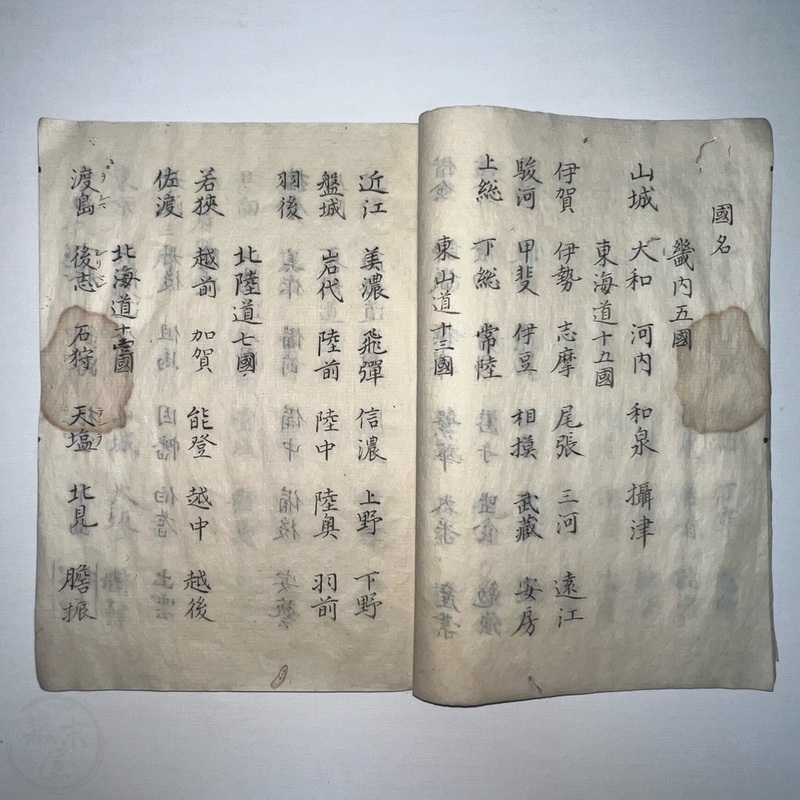 國名
畿内五國
山城 大和 河内 和泉 攝津
東海道十五國
伊賀 伊勢 志摩 尾張 三河 遠江
駿河 甲斐 伊豆 相摸 武藏 安房
上総 下総 常陸
東山道十三國
近江 美濃 飛彈 信濃 上野 下野
盤城 岩代 陸前 陸中 陸奥 羽前
羽後
北陸道七國
若狹 越前 加賀 能登 越中 越後
佐渡
北海道十國
渡島 後志 石狩 天塩 北見 膽振